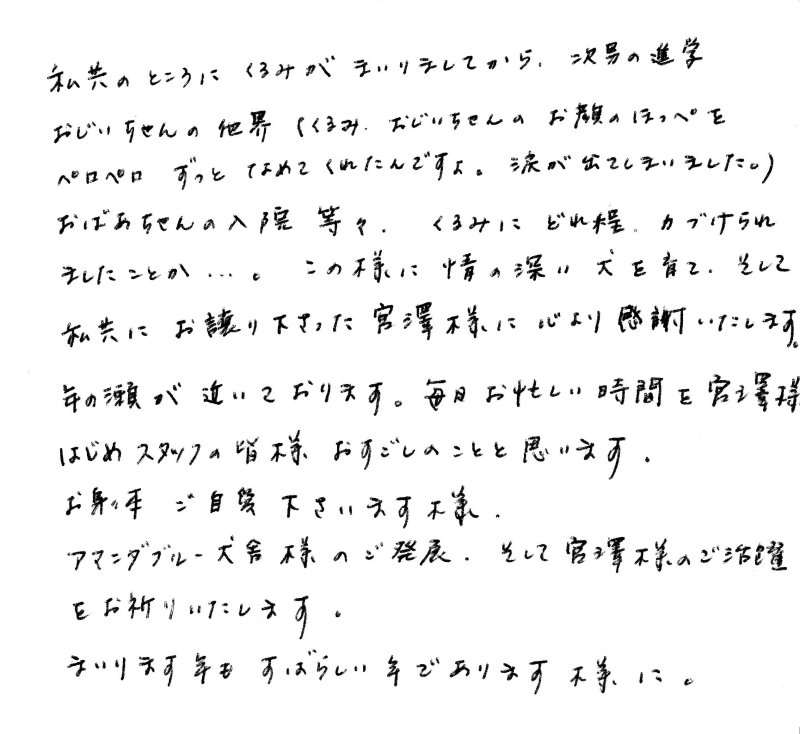 私共のところに くるみが まいりましてから、次男の進学
おじいちゃんの他界 (くるみ、おじいちゃんの お顔のほっぺを
ペロペロ ずっと なめて くれたんですよ。涙が出てしまいました。)
おばあちゃんの入院 等々、 くるみに どれ程、力づけられ
ましたことか…。 この様に 情の深い 犬を育て、そして
私共に お譲り下さった 宮澤様に 心より 感謝いたします。
年の瀬が 近いております。毎日お忙しい時間を宮澤様
はじめスタッフの皆様 おすごしのことと思います。
お身体 ご自愛下さいます様、
アマンダブルー犬舎様のご発展、そして宮澤様のご活躍
をお祈りいたします。
まいります年も すばらしい年であります様に。